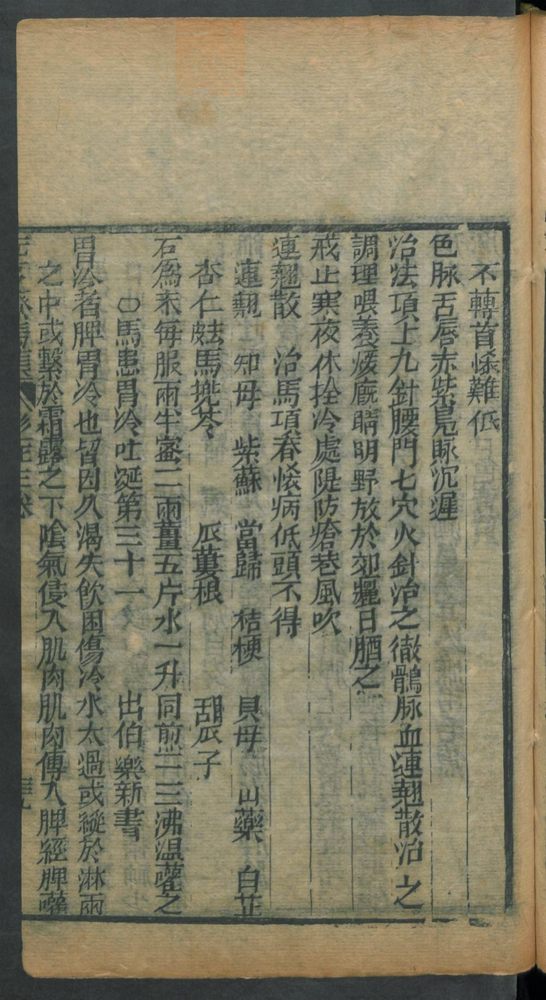 不轉首㑛難低
色脉舌唇赤紫鳧脉沉遲
治法項上九針腰門七穴火針治之徹鶻脉血連翹散治之
調理喂養煖廐晴明野放於郊曬日䐃之
戒止寒夜休拴冷處隄防簷巷風吹
連翹散 治馬項脊㑛病低頭不得
連翹 知母 紫蘇 當歸 桔梗 貝母 山藥 白芷
杏仁 馬兜苓 瓜蔞根 甜瓜子
右為末每服兩半蜜二兩薑五片水一升同煎二三沸溫灌之
○馬患胃冷吐涎第三十一 出伯樂新書
胃冷者脾胃冷也皆因久渴失飲困傷冷水太過或縱於淋雨
之中或繫於霜露之下陰氣侵入肌肉肌肉傳入脾經脾